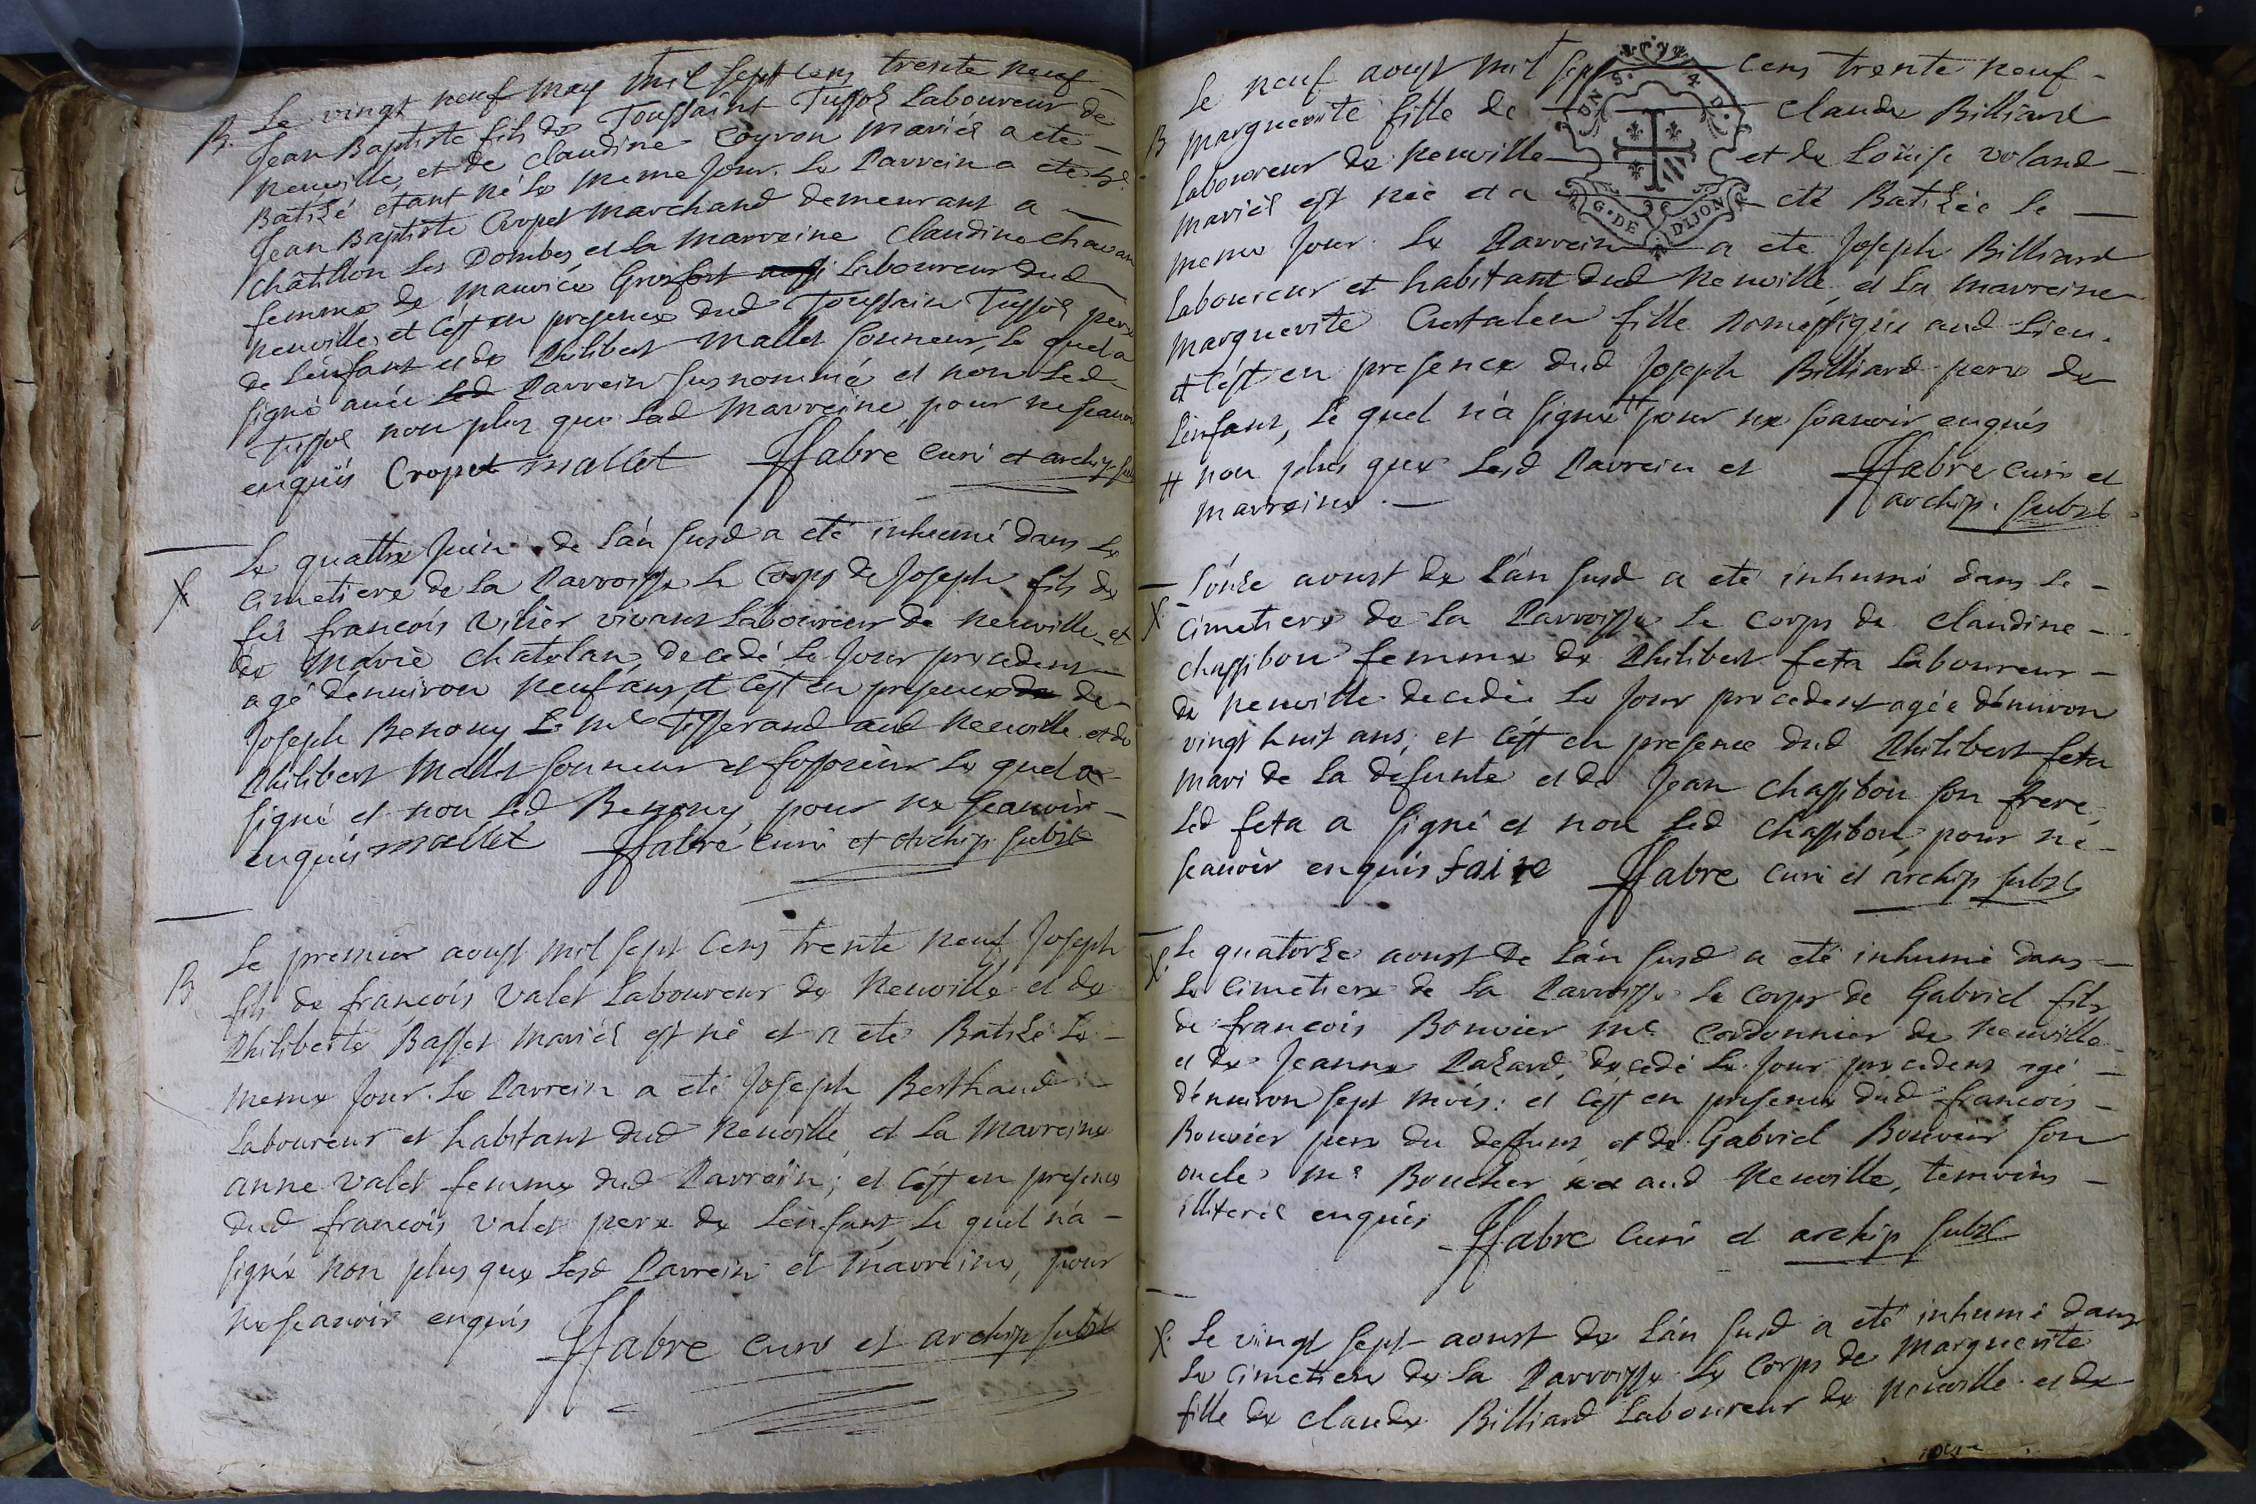 Le vingt neuf may mil sept cens trente neuf
B. Jean Baptiste fils de Toussaint Tussot Laboureur de
neuville, et de claudine Coyron mariés a eté
Batizé etant né le meme jour. Le Parrein a eté Sr.
Jean Baptiste Cropet marchand demeurant a
châtillon Les Dombes, et La marreine Claudine Chavan
femme de maurice Grosfort aussi Laboureur dud
neuville, et c'est en presence dud Toussain Tussot pere
de L'enfant et de Philibert mallet sonneur, Le quel a
signé avéc led Parrein susnommé et non Led
Tussot non plus que Lad marreine, pour ne scavoir
enquis Cropet mallet ffabre curé et archip. subst
Le quattre Juin de L'án susd a eté inhumé dans Le
X cimetiere de La Parroisse le Corps de Joseph fils de
feu francois vivant Laboureur de neuville et
de Marie chatelan, decedé Le Jour precedent
agé d'environ neuf ans, et c'est en presence de
Joseph Benony Le me Tisserand aud neuville et de
Philibert Mallet sonneur et fossoieur Le quel a
signé et non Led Benony, pour ne scavoir
enquis mallet ffabre curé et archip subst
Le premier aoust mil sept cens trente neuf Joseph
B fils de francois Valet Laboureur de neuville et de
Philiberte Basset mariés est né et a eté Batizé Le
meme Jour. Le Parrein a eté Joseph Berthaud
Laboureur et habitant dud neuville, et La marreine
anne valet femme dud Parrein; et c'est en presence
dud francois valet pere de L'enfant, Le quel n'a
signé non plus que Lesd Parrein et marreine, pour
ne scavoir enquis ffabre curé et archip subst
Le neuf aoust mil sept cens trente neuf
B marguerite fille de claude Billiard
Laboureur de neuville et de Loüise voland
mariés est née et a eté Batizée le
meme Jour. Le Parrein a eté Joseph Billiard
UNS. 4 D.
G. DE DIJON
Laboureur et habitant dud neuville, et La marreine
marguerite fille Domestique aud Lieu.
et c'est en presence dud Joseph Billiard pere de
L'enfant, Le quel n'a signé # pour ne scavoir enquis
# non plus que Lesd Parrein et ffabre curé et
marreine. archip. subst
L'ónze aoust de L'án susd a eté inhumé dans Le
X cimetiere de La Parroisse Le corps de claudine
chassibou femme de Philibert feta Laboureur
de neuville decedée Le Jour precedent agée d'environ
vingt huit ans; et c'est en presence dud Philibert feta
mari de La defunte et de Jean chassibou son frere,
Led feta a signé et non Led chassibou, pour ne
scavoir enquis faire ffabre curé et archip subst
Le quatorze aoust de L'án susd a eté inhumé dans
X. Le cimetiere de La Parroisse Le corps de Gabriel fils
de francois Bouvier me cordonnier de neuville
et de Jeanne Pazard, decedé Le Jour precedent agé
d'environ sept mois: et c'est en presence dud francois
Bouvier pere du deffunt, et de Gabriel Bouvier son
oncle me Boucher aud neuville, temoins
illiterés enquis ffabre curé et archip subst
X. Le vingt sept aoust de L'án susd a eté inhumé dans
Le cimetiere de La Parroisse Le Corps de marguerite
fille de claude Billiard Laboureur de neuville et de